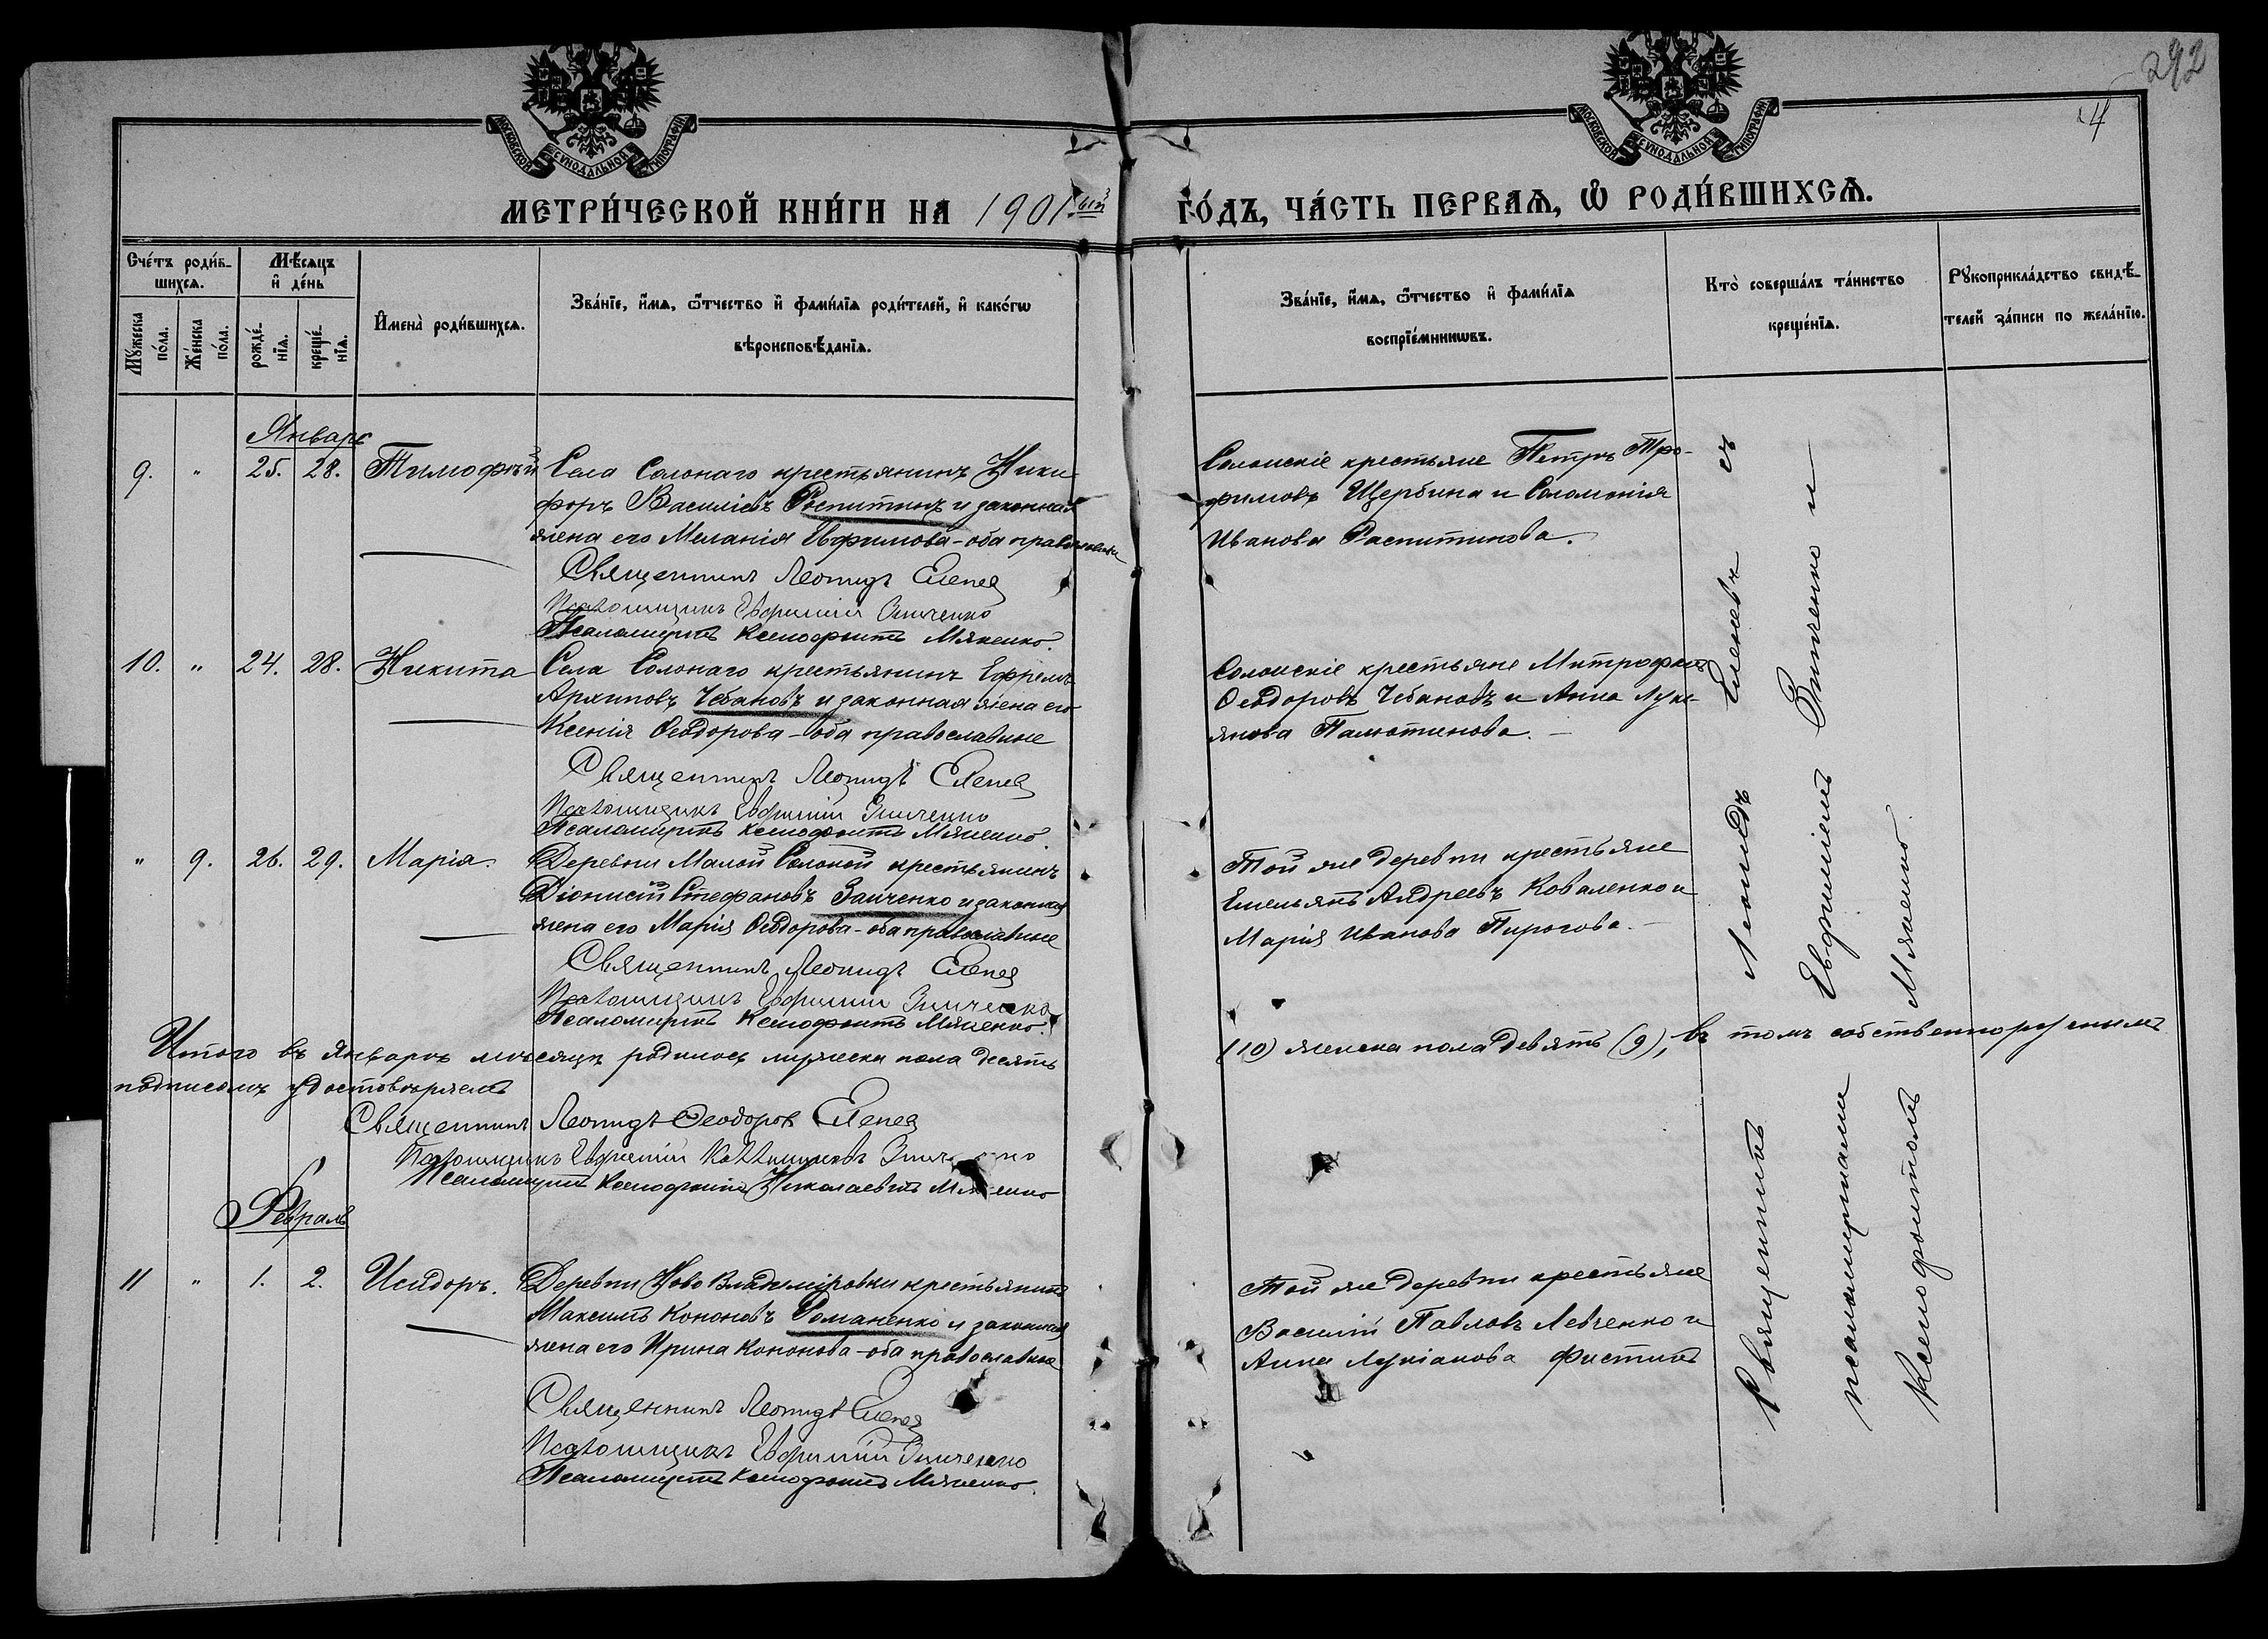 292
4
МОСКОВСКОЙ СѴНОДАЛЬНОЙ ТИПОГРАФІИ
МОСКОВСКОЙ СѴНОДАЛЬНОЙ ТИПОГРАФІИ
МЕТРИ́ЧЕСКОЙ КНИ́ГИ НА 1901ый ГО́ДЪ, ЧА́СТЬ ПЕРВАѦ, Ѽ РОДИ́ВШИХСѦ.
Сче́тъ роди́в-
шихсѧ.
Мѣ́сяцъ
и҆ де́нь
Мꙋ́жеска
по́ла.
Же́нска
по́ла.
рожде́-
нїѧ.
креще́-
нїѧ.
И҆мена̀ роди́вшихсѧ.
Зва́нїе, и҆́мѧ, ѻ҆́тчество и҆ фами́лїѧ роди́телей, и҆ како́гѡ
вѣроисповѣ́данїѧ.
Зва́нїе, и҆́мѧ, ѻ҆́тчество и҆ фами́лїѧ
воспрїе́мникѡвъ.
Кто̀ соверша́лъ та́инство
креще́нїѧ.
Рꙋкоприкла́дство свидѣ́-
телей за́писи по жела́нїю.
Январь
9. " 25. 28. Тимофѣй Села Солонаго крестьянинъ Ники-
форъ Василіевъ Роспитинъ и законная
жена его Меланія Евфимова - оба православные
Священникъ Леонидъ Еленев
Псаломщикъ Евфимій Зинченко
Псаломщикъ Ксенофонтъ Мякенко.
Солонскіе крестьяне Петръ Тро-
фимовъ Щербина и Соломонія
Иванова Распитинова.
10. " 24. 28. Никита Села Солонаго крестьянинъ Ефремъ
Архиповъ Чебановъ и законная жена его
Ксенія Ѳеодорова - оба православные
Священникъ Леонидъ Еленев
Псаломщикъ Евфимій Зинченко
Псаломщикъ Ксенофонтъ Мякенко.
Солонскіе крестьяне Митрофанъ
Ѳеодоровъ Чебановъ и Анна Лукі-
янова Палютинова.
" 9. 26. 29. Марія. Деревни Малой Солоной крестьянинъ
Діонисій Стефановъ Заиченко и законная
жена его Марія Ѳеодорова - оба православные
Священникъ Леонидъ Еленев
Псаломщикъ Евфимій Зинченко
Псаломщикъ Ксенофонтъ Мякенко.
Той же деревни крестьяне
Емельянъ Андреевъ Коваленко и
Марія Иванова Пирогова.
Итого въ Январѣ мѣсяцѣ родилось мужеска пола десять (10) женска пола девять (9), въ томъ собственноручнымъ
подписомъ удостовѣряемъ
Священникъ Леонидъ Ѳеодоров Еленев
Псаломщикъ Евфимій Зинченко
Псаломщикъ Ксенофонтъ Николаевичъ Мякенко
Февраль
11 " 1. 2. Исидоръ. Деревни Ново Владиміровки крестьянинъ
Максимъ Кононовъ Романенко и законная
жена его Ирина Кононова - оба православные
Священникъ Леонидъ Еленев
Псаломщикъ Евфимій Зинченко
Псаломщикъ Ксенофонтъ Мякенко.
Той же деревни крестьяне
Василій Павловъ Левченко и
Анна Лукіанова Фистинъ
Священникъ Леонидъ Еленевъ съ
псаломщиками Евфиміемъ Зинченко и
Ксенофонтомъ Мякенко